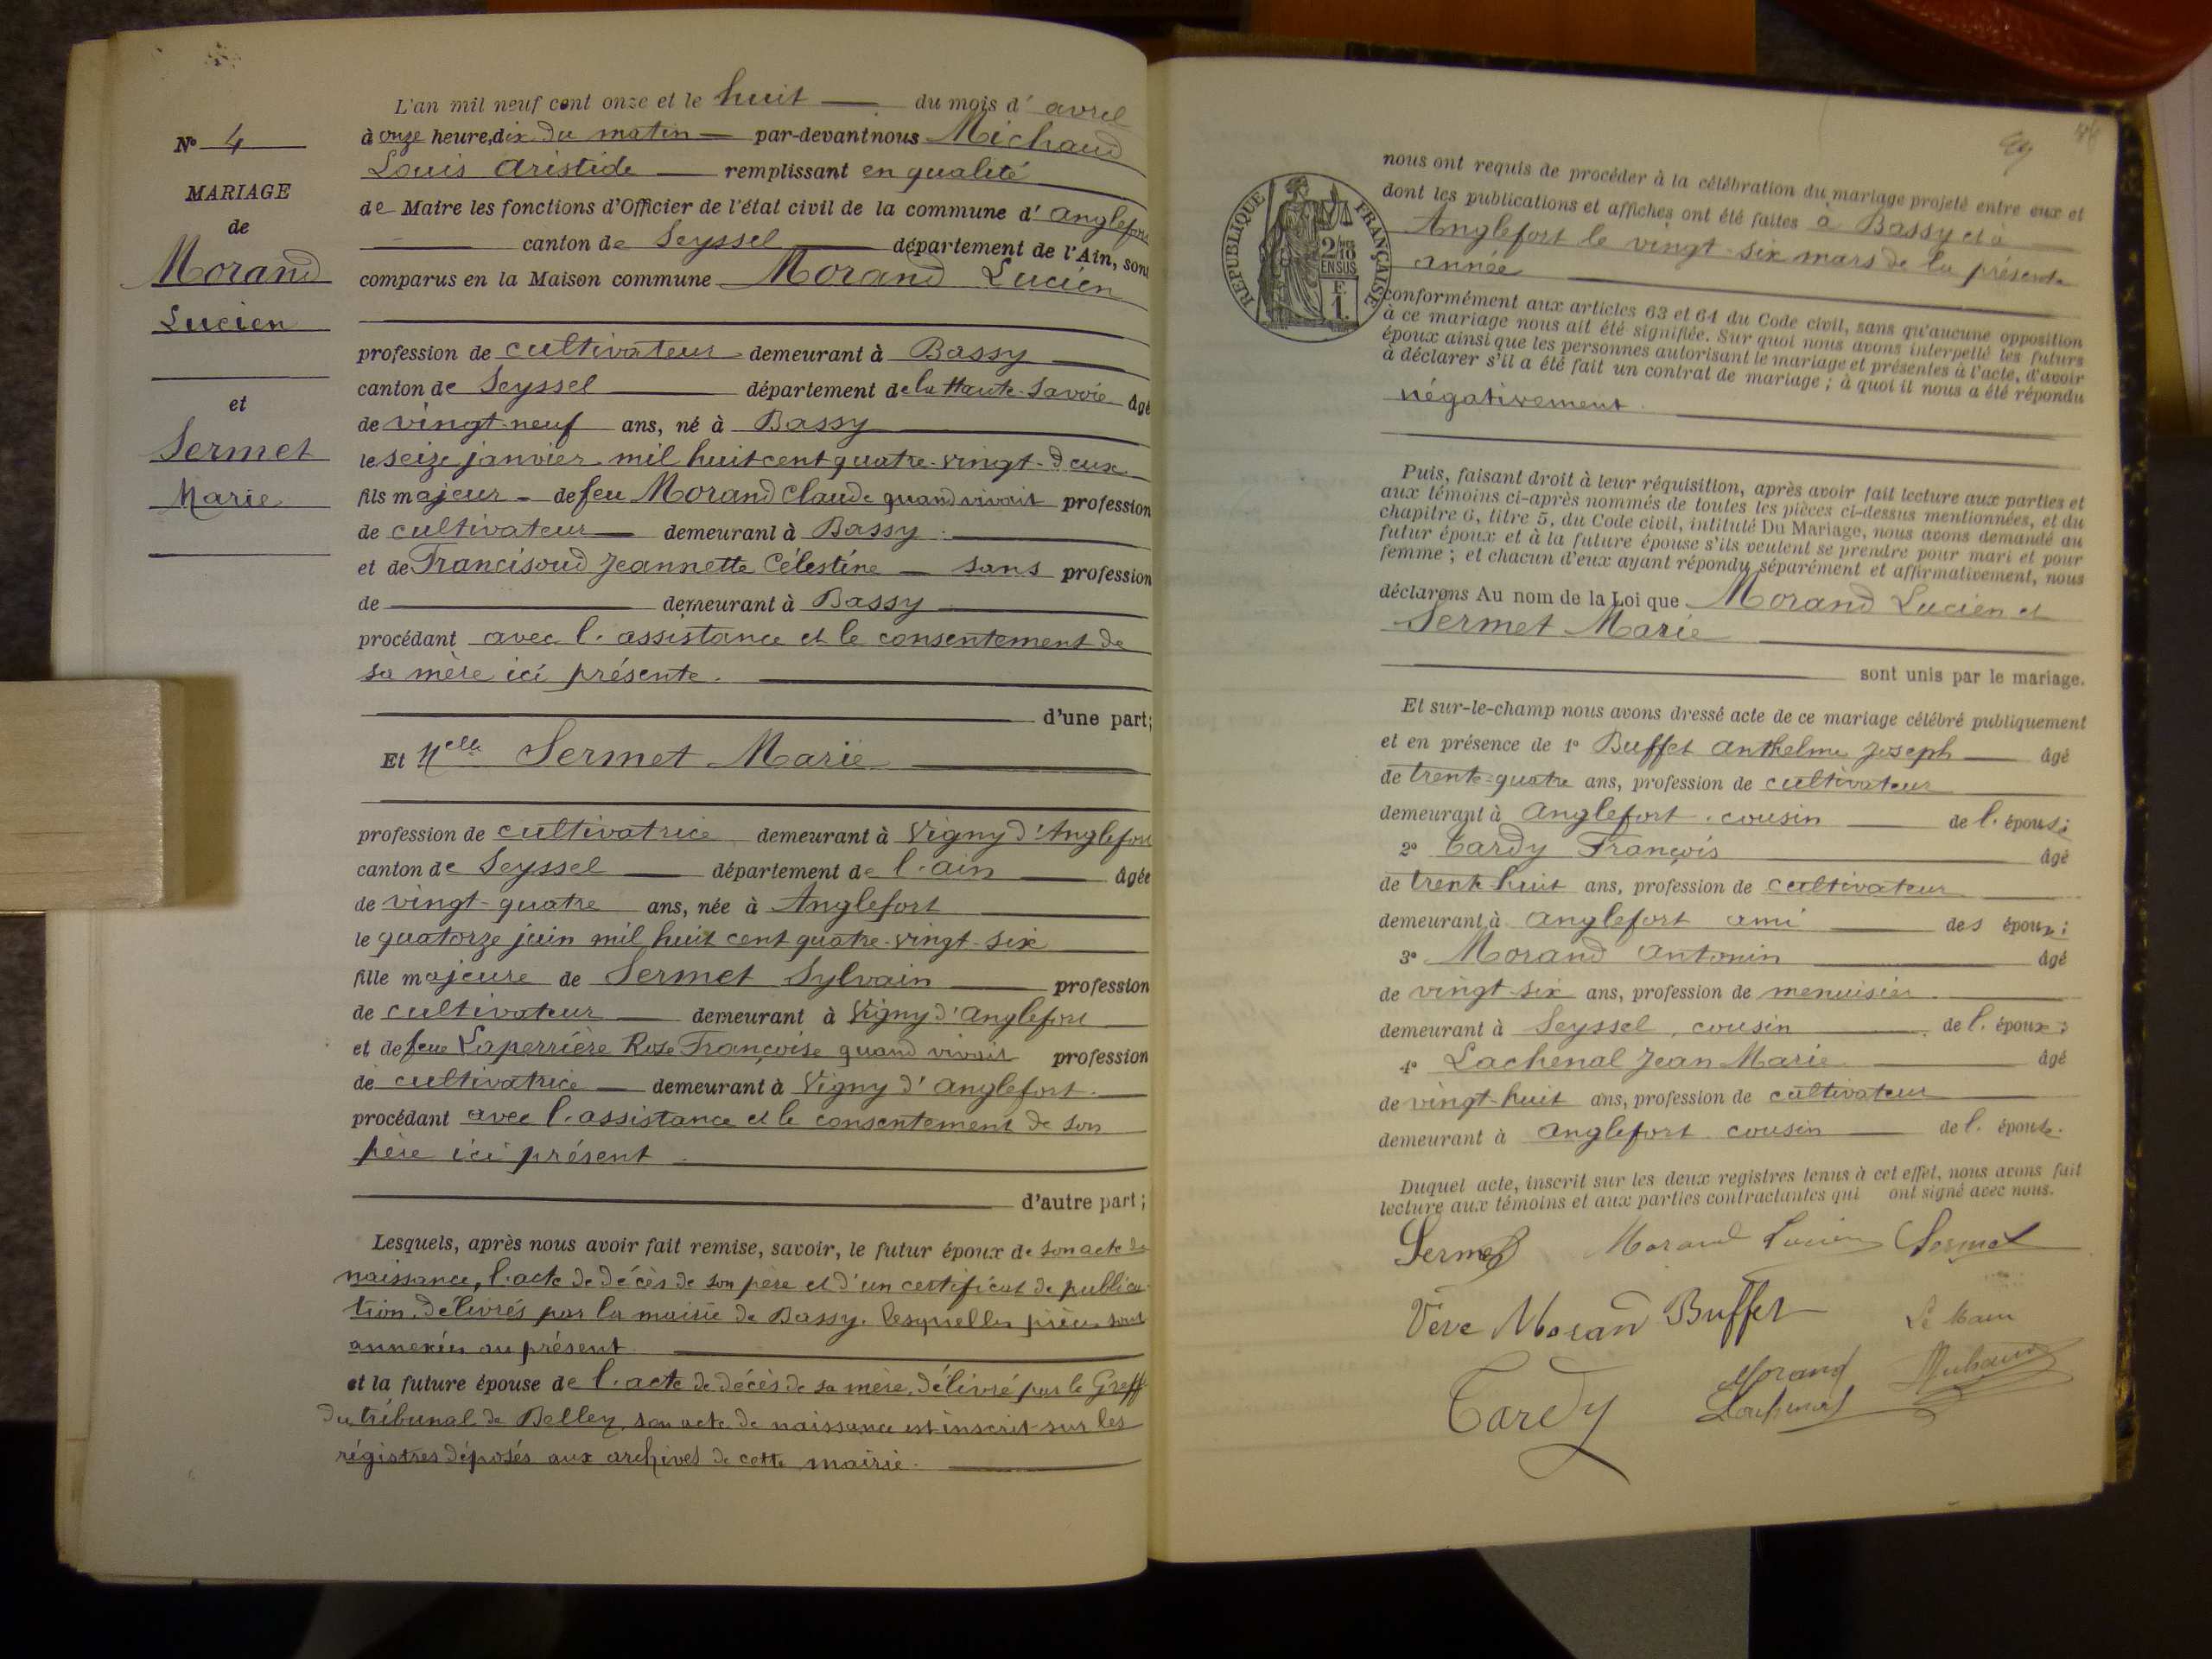 N° 4
MARIAGE
de
Morand
Lucien
et
Sermet
Marie
L'an mil neuf cent onze et le huit du mois d'avril
à onze heure, dix du matin par-devant nous Michaud
Louis Aristide remplissant en qualité
de Maire les fonctions d'Officier de l'état civil de la commune d'Anglefort
canton de Seyssel département de l'Ain, sont
comparus en la Maison commune Morand Lucien
profession de cultivateur demeurant à Bassy
canton de Seyssel département de la Haute-Savoie âgé
de vingt-neuf ans, né à Bassy
le seize janvier mil huit cent quatre-vingt-deux
fils majeur de feu Morand Claude quand vivait profession
de cultivateur demeurant à Bassy
et de Francisoud Jeannette Célestine sans profession
de demeurant à Bassy
procédant avec l'assistance et le consentement de
sa mère ici présente.
d'une part;
Et Melle Sermet Marie
profession de cultivatrice demeurant à Vigny d'Anglefort
canton de Seyssel département de l'Ain âgée
de vingt-quatre ans, née à Anglefort
le quatorze juin mil huit cent quatre-vingt-six
fille majeure de Sermet Sylvain profession
de cultivateur demeurant à Vigny d'Anglefort
et de feue Laperrière Rose Françoise quand vivait profession
de cultivatrice demeurant à Vigny d'Anglefort.
procédant avec l'assistance et le consentement de son
père ici présent
d'autre part;
Lesquels, après nous avoir fait remise, savoir, le futur époux de son acte de
naissance, l'acte de décès de son père et d'un certificat de publica-
tion, délivrés par la mairie de Bassy. lesquelles pièces sont
annexées au présent
et la future épouse de l'acte de décès de sa mère, délivré par le Greffe
du tribunal de Belley, son acte de naissance est inscrit sur les
régistres déposés aux archives de cette mairie.
RÉPUBLIQUE FRANÇAISE
2/10
EN SUS
F.
1.
nous ont requis de procéder à la célébration du mariage projeté entre eux et
dont les publications et affiches ont été faites à Bassy et à
Anglefort le vingt-six mars de la présente
année
conformément aux articles 63 et 64 du Code civil, sans qu'aucune opposition
à ce mariage nous ait été signifiée. Sur quoi nous avons interpellé les futurs
époux ainsi que les personnes autorisant le mariage et présentes à l'acte, d'avoir
à déclarer s'il a été fait un contrat de mariage; à quoi il nous a été répondu
négativement.
Puis, faisant droit à leur réquisition, après avoir fait lecture aux parties et
aux témoins ci-après nommés de toutes les pièces ci-dessus mentionnées, et du
chapitre 6, titre 5, du Code civil, intitulé Du Mariage, nous avons demandé au
futur époux et à la future épouse s'ils veulent se prendre pour mari et pour
femme; et chacun d'eux ayant répondu séparément et affirmativement, nous
déclarons Au nom de la Loi que Morand Lucien et
Sermet Marie
sont unis par le mariage.
Et sur-le-champ nous avons dressé acte de ce mariage célébré publiquement
et en présence de 1° Buffet Anthelme Joseph âgé
de trente-quatre ans, profession de cultivateur
demeurant à Anglefort, cousin de l'épouse;
2° Tardy François âgé
de trente-huit ans, profession de cultivateur
demeurant à Anglefort ami des époux;
3° Morand Antonin âgé
de vingt-six ans, profession de menuisier
demeurant à Seyssel, cousin de l'époux;
4° Lachenal Jean Marie âgé
de vingt-huit ans, profession de cultivateur
demeurant à Anglefort cousin de l'épouse.
Duquel acte, inscrit sur les deux registres tenus à cet effet, nous avons fait
lecture aux témoins et aux parties contractantes qui ont signé avec nous.
Sermet Morand Lucien Sermet
Veve Morand Buffet Le Maire
Tardy Morand Michaud
Lachenal